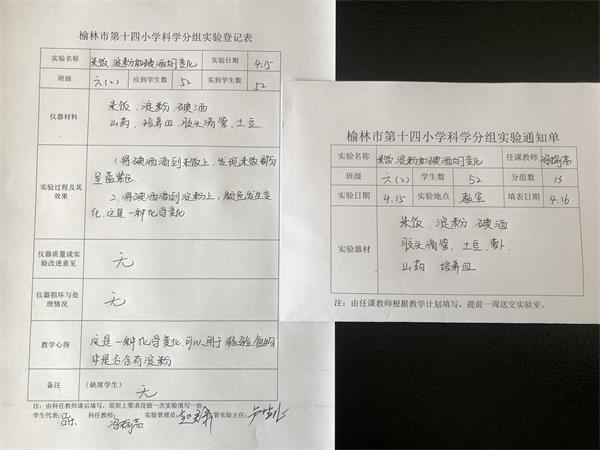 榆林市第十四小学科学分组实验登记表
实验名称 米饭、淀粉和碘酒的变化 实验日期 4.15
班级 六(2) 应到学生数 52 实到学生数 52
仪器材料
米饭、淀粉、碘酒
山药、培养皿、胶头滴管、土豆
实验过程及其效果
1.将碘酒滴到米饭上，发现米饭部分
呈蓝紫色
2、将碘酒滴到淀粉上，颜色发生变
化，这是一种化学变化
仪器质量或实验改进意见 无
仪器损坏与处理情况 无
教学心得
这是一种化学变化，可以用于检验食物
中是否含有淀粉
备注 (缺席学生) 无
注：由科任教师课后填写，原则上要求没做一次实验填写一份
学生代表： 科任教师： 实验管理员： 管实验主任：
榆林市第十四小学科学分组实验通知单
实验名称 米饭、淀粉和碘酒的变化 任课教师
班级 六(2) 学生数 52 分组数 13
实验日期 4.15 实验地点 教室 填表日期 4.16
实验器材
米饭、淀粉、碘酒
胶头滴管、土豆、萝卜
山药、培养皿
注：由任课教师根据教学计划填写，提前一周送交实验室。